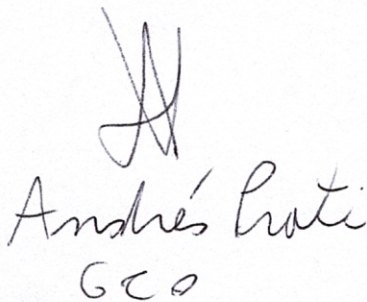 Andrés Prati
GCO